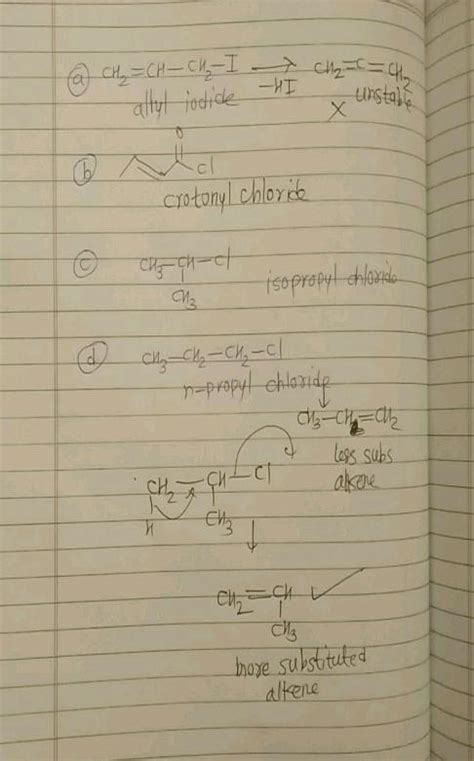 (a) CH2=CH-CH2-I → CH2=C=CH2
-HI
allyl iodide X unstable
O
(b) Cl
crotonyl chloride
(c) CH3-CH-Cl
CH3
isopropyl chloride
(d) CH3-CH2-CH2-Cl
n-propyl chloride
↓
CH3-CH=CH2
less subs
alkene
CH2-CH-Cl
H CH3
↓
CH2=CH ✓
CH3
more substituted
alkene